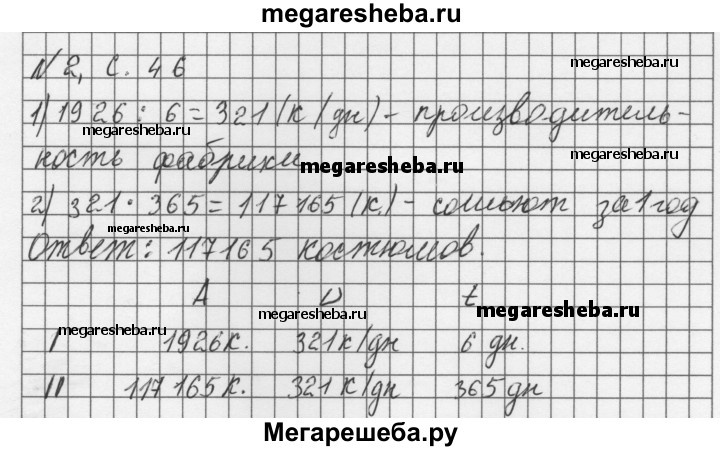 megaresheba.ru
№ 2, с. 46
megaresheba.ru
1) 1926 : 6 = 321 (к/дн) - производитель-
megaresheba.ru
ность фабрики
megaresheba.ru
megaresheba.ru
2) 321 · 365 = 117165 (к) - сошьют за 1 год
Ответ: 117165 костюмов.
megaresheba.ru
megaresheba.ru
A υ t
megaresheba.ru
megaresheba.ru
I 1926к. 321 к/дн 6 дн.
II 117165к. 321 к/дн 365 дн
megaresheba.ru
megaresheba.ru
Мегарешеба.ру